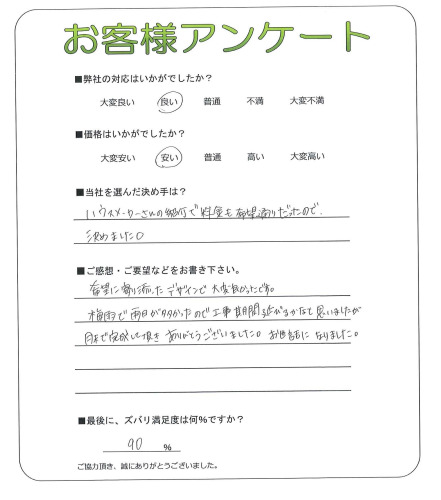 お客様アンケート
■弊社の対応はいかがでしたか？
大変良い 良い 普通 不満 大変不満
■価格はいかがでしたか？
大変安い 安い 普通 高い 大変高い
■当社を選んだ決め手は？
ハウスメーカーさんの紹介で料金も希望通りだったので、
決めました。
■ご感想・ご要望などをお書き下さい。
希望に寄り添ったデザインで大変良かったです。
梅雨で雨日が多かったので工事期間延びるかなと思いましたが
月末で完成して頂きありがとうございました。お世話になりました。
■最後に、ズバリ満足度は何％ですか？
90 ％
ご協力頂き、誠にありがとうございました。